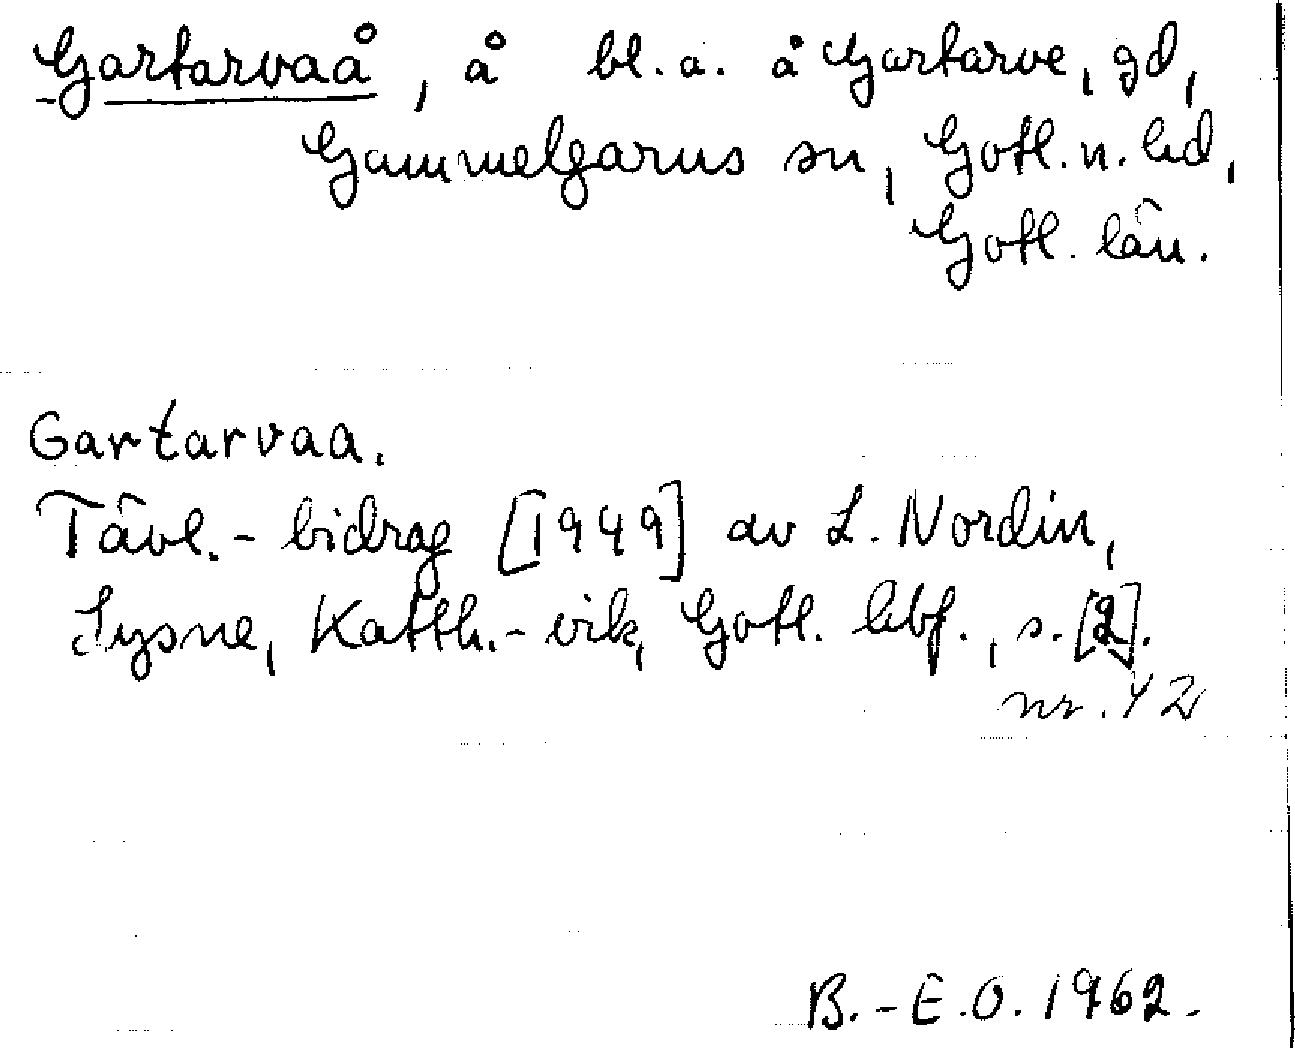 Gartarvaå, å bl. a. å Gartarve, gd,
Gammelgarns sn, Gotl. n. hd,
Gotl. län.
Gartarvaa.
Tävl.-bidrag [1949] av L. Nordin,
Sysne, Katth.-vik, Gotl. hbf., s. [2].
nr. 42
B.-E.O. 1962.